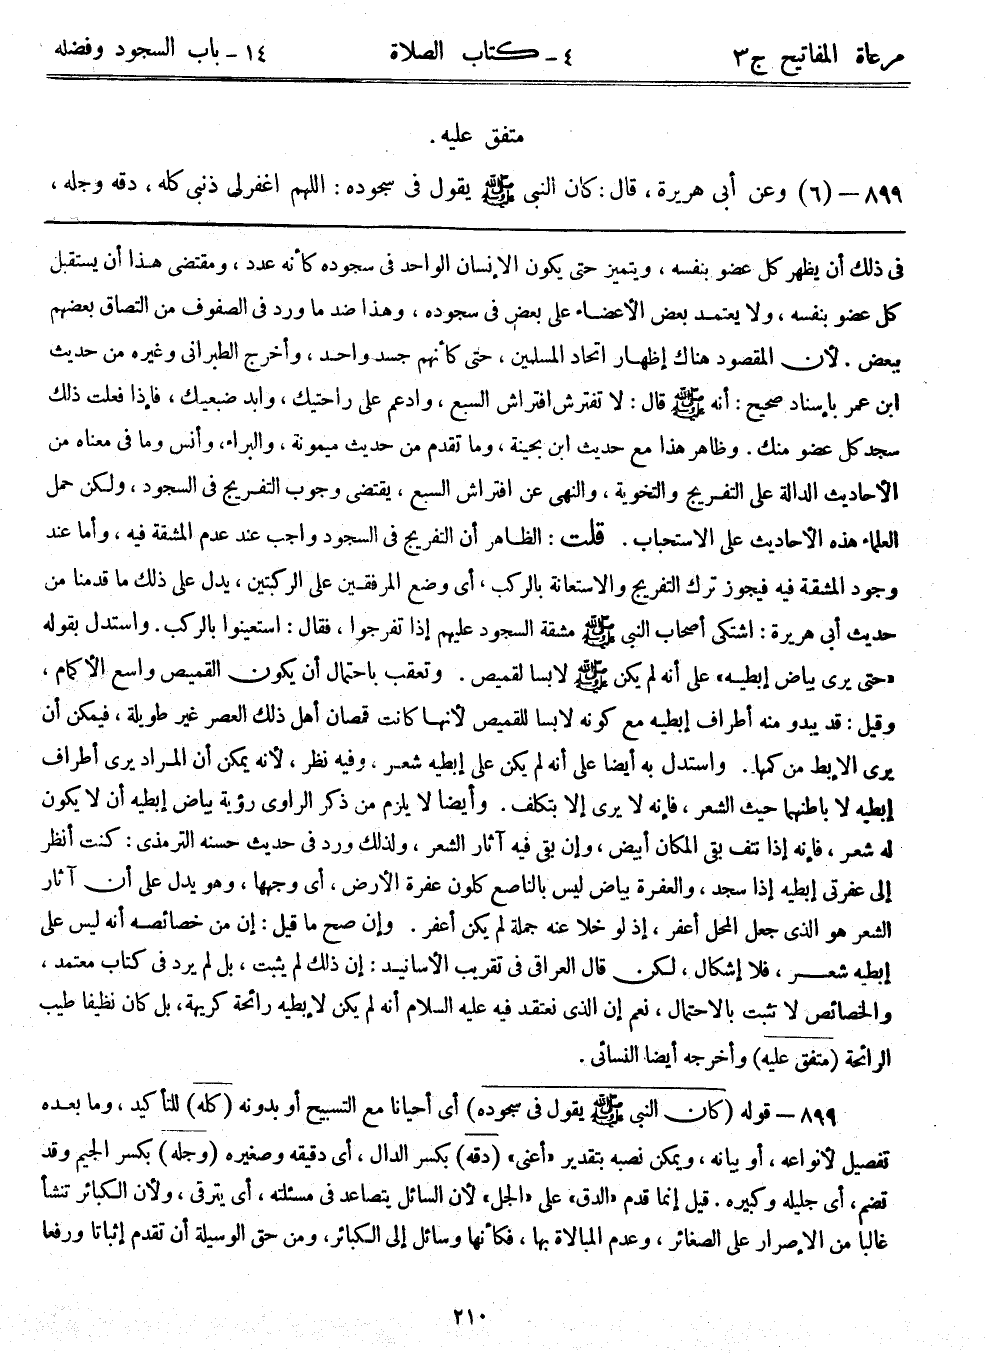 مرعاة المفاتيح ج٣ ٤ - كتاب الصلاة ١٤ - باب السجود وفضله
متفق عليه .
٨٩٩ - (٦) وعن أبى هريرة ، قال : كان النبى ﷺ يقول فى سجوده : اللهم اغفرلى ذنبى كله ، دقه وجله ،
فى ذلك أن يظهر كل عضو بنفسه ، ويتميز حتى يكون الإنسان الواحد فى سجوده كأنه عدد ، ومقتضى هذا أن يستقبل
كل عضو بنفسه ، ولا يعتمد بعض الأعضاء على بعض فى سجوده ، وهذا ضد ما ورد فى الصفوف من التصاق بعضهم
ببعض . لأن المقصود هناك إظهار اتحاد المسلمين ، حتى كأنهم جسد واحد ، وأخرج الطبرانى وغيره من حديث
ابن عمر بإسناد صحيح : أنه ﷺ قال : لا تفترش افتراش السبع ، وادعم على راحتيك ، وابد ضبعيك ، فإذا فعلت ذلك
سجد كل عضو منك . وظاهر هذا مع حديث ابن بحينة ، وما تقدم من حديث ميمونة ، والبراء، وأنس وما فى معناه من
الأحاديث الدالة على التفريج والتخوية ، والنهى عن افتراش السبع ، يقتضى وجوب التفريج فى السجود ، ولكن حمل
العلماء هذه الأحاديث على الاستحباب . قلت : الظاهر أن التفريج فى السجود واجب عند عدم المشقة فيه ، وأما عند
وجود المشقة فيه فيجوز ترك التفريج والاستعانة بالركب ، أى وضع المرفقين على الركبتين ، يدل على ذلك ما قدمنا من
حديث أبى هريرة : اشتكى أصحاب النبى ﷺ مشقة السجود عليهم إذا تفرجوا ، فقال : استعينوا بالركب . واستدل بقوله
«حتى يرى بياض إبطيه» على أنه لم يكن ﷺ لابسا لقميص . وتعقب باحتمال أن يكون القميص واسع الأكمام ،
وقيل : قد يبدو منه أطراف إبطيه مع كونه لابسا للقميص لأنها كانت قمصان أهل ذلك العصر غير طويلة ، فيمكن أن
يرى الإبط من كمها. واستدل به أيضا على أنه لم يكن على إبطيه شعر ، وفيه نظر ، لأنه يمكن أن المراد يرى أطراف
إبطيه لا باطنهما حيث الشعر ، فإنه لا يرى إلا بتكلف . وأيضا لا يلزم من ذكر الراوى رؤية بياض إبطيه أن لا يكون
له شعر ، فإنه إذا نتف بقى المكان أبيض ، وإن بقى فيه آثار الشعر ، ولذلك ورد فى حديث حسنه الترمذى : كنت أنظر
إلى عفرتى إبطيه إذا سجد ، والعفرة بياض ليس بالناصع كلون عفرة الأرض ، أى وجهها ، وهو يدل على أن آثار
الشعر هو الذى جعل المحل أعفر ، إذ لو خلا عنه جملة لم يكن أعفر . وإن صح ما قيل : إن من خصائصه أنه ليس على
إبطيه شعر ، فلا إشكال ، لكن قال العراقى فى تقريب الأسانيد : إن ذلك لم يثبت ، بل لم يرد فى كتاب معتمد ،
والخصائص لا تثبت بالاحتمال ، نعم إن الذى نعتقد فيه عليه السلام أنه لم يكن لإبطيه رائحة كريهة، بل كان نظيفا طيب
الرائحة (متفق عليه) وأخرجه أيضا النسائى .
٨٩٩ - قوله (كان النبى ﷺ يقول فى سجوده) أى أحيانا مع التسبيح أو بدونه (كله) للتأكيد ، وما بعده
تفصيل لأنواعه ، أو بيانه ، ويمكن نصبه بتقدير «أعنى» (دقه) بكسر الدال ، أى دقيقه وصغيره (وجله) بكسر الجيم وقد
تضم، أى جليله وكبيره . قيل إنما قدم «الدق» على «الجل» لأن السائل يتصاعد فى مسئلته ، أى يترقى ، ولأن الكبائر تنشأ
غالبا من الإصرار على الصغائر ، وعدم المبالاة بها ، فكأنها وسائل إلى الكبائر، ومن حق الوسيلة أن تقدم إثباتا ورفعا
٢١٠